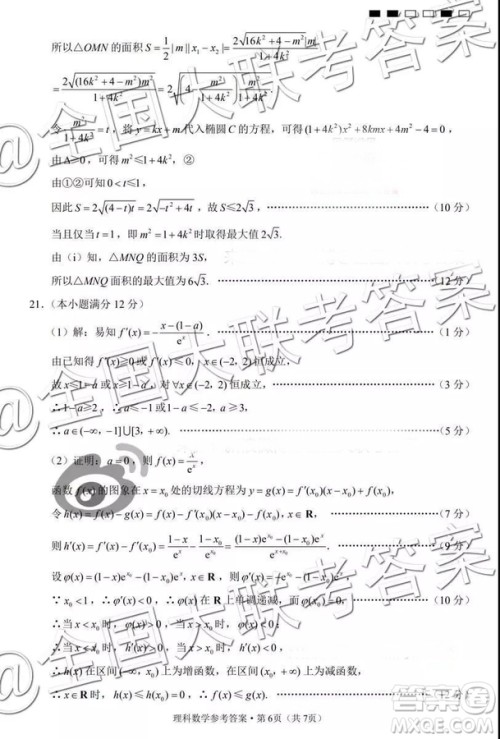 所以△OMN 的面积 S = 1/2 |m||x₁ − x₂| = 2√(16k² + 4 − m²)|m| / (1 + 4k²)
= 2√((16k² + 4 − m²)m²) / (1 + 4k²) = 2√((4 − m²/(1 + 4k²)) · m²/(1 + 4k²)).
令 m²/(1 + 4k²) = t，将 y = kx + m 代入椭圆 C 的方程，可得(1 + 4k²)x² + 8kmx + 4m² − 4 = 0，
由Δ≥0，可得 m² ≤ 1 + 4k²，②
由①②可知 0 < t ≤ 1，
因此 S = 2√((4 − t)t) = 2√(−t² + 4t)，故 S ≤ 2√3， (10 分)
当且仅当 t = 1，即 m² = 1 + 4k² 时取得最大值 2√3.
由（i）知，△MNQ 的面积为 3S，
所以△MNQ 面积的最大值为 6√3. (12 分)
21.（本小题满分 12 分）
（1）解：易知 f′(x) = − (x − (1 − a))/eˣ， (1 分)
由已知得 f′(x) ≥ 0 或 f′(x) ≤ 0，x∈(−2, 2)恒成立，
故 x ≤ 1 − a 或 x ≥ 1 − a，对 ∀x∈(−2, 2)恒成立， (3 分)
∴1 − a ≥ 2，∴1 − a ≤ −2，∴a ≤ −1，a ≥ 3，
∴a∈(−∞, −1]∪[3, +∞). (5 分)
（2）证明：a = 0，则 f(x) = x/eˣ，
函数 f(x) 的图象在 x = x₀ 处的切线方程为 y = g(x) = f′(x₀)(x − x₀) + f(x₀)，
令 h(x) = f(x) − g(x) = f(x) − f′(x₀)(x − x₀) − f(x₀)，x∈R，
则 h′(x) = f′(x) − f′(x₀) = (1 − x)/eˣ − (1 − x₀)/e^{x₀} = ((1 − x)e^{x₀} − (1 − x₀)eˣ)/e^{x + x₀}. (9 分)
设 φ(x) = (1 − x)e^{x₀} − (1 − x₀)eˣ，x∈R，则 φ′(x) = −e^{x₀} − (1 − x₀)eˣ，
∵x₀ < 1，∴φ′(x) < 0，∴φ(x) 在 R 上单调递减，而 φ(x₀) = 0， (10 分)
∴当 x < x₀ 时 φ(x) > 0，当 x > x₀ 时 φ(x) < 0，
∴当 x < x₀ 时，h′(x) > 0，当 x > x₀ 时 h′(x) < 0，
∴h(x) 在区间(−∞, x₀)上为增函数，在区间(x₀, +∞)上为减函数，
∴x∈R 时，h(x) ≤ h(x₀) = 0，∴f(x) ≤ g(x). (12 分)
理科数学参考答案·第 6 页（共 7 页）
@全国大联考答案
@全国大联考答案